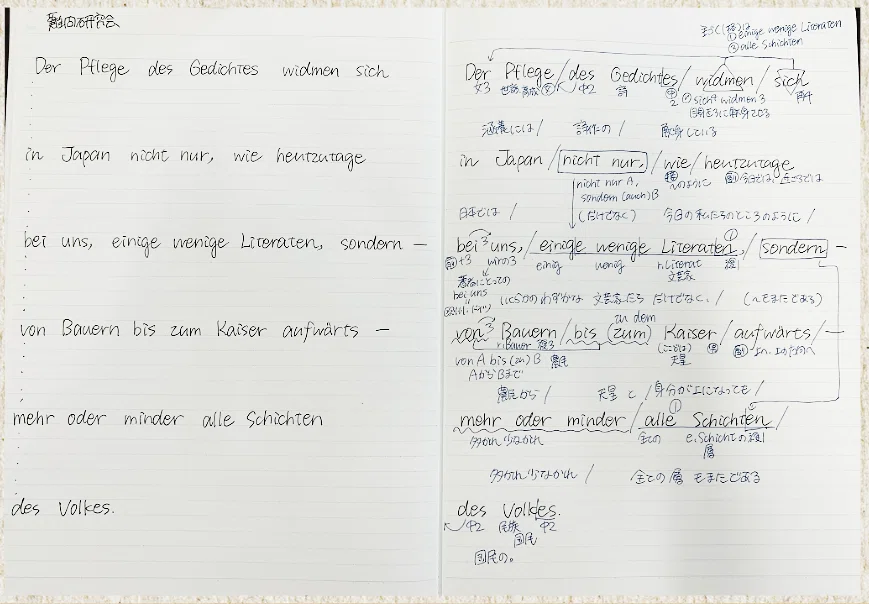 難問研究会
Der Pflege des Gedichtes widmen sich
in Japan nicht nur, wie heutzutage
bei uns, einige wenige Literaten, sondern –
von Bauern bis zum Kaiser aufwärts –
mehr oder minder alle Schichten
des Volkes.
① einige wenige Literaten
② alle Schichten
Der Pflege / des Gedichtes / widmen / sich
女3 中2 詩 ② sich widmen 3 再4
涵養には / 詩作の / 献身している
in Japan / nicht nur, / wie / heutzutage
nicht nur A, のように 今日では、近ごろでは
sondern (auch) B
日本では / (だけでなく) 今日の私たちのところのように /
bei³ uns, / einige wenige Literaten, ① / sondern –
+3 wirの3 einig wenig r. Literat 複1
文芸家
著者にとっての
bei uns
いくらかのわずかな 文芸家たち だけでなく、/ (〜もまたである)
zu dem
von³ Bauern / bis (zum) Kaiser / aufwärts / –
r. Bauer 複3 (ここでは) 副 上へ、上の方向へ
von A bis (zu) B 農民 天皇
AからBまで
農民から / 天皇と / 身分が上になっても /
mehr oder minder / alle ① Schichten /
多かれ少なかれ 全ての e. Schichtの複1
層
多かれ少なかれ / 全ての層もまたである
des Volkes.
中2 民族 中2
国民
国民の。